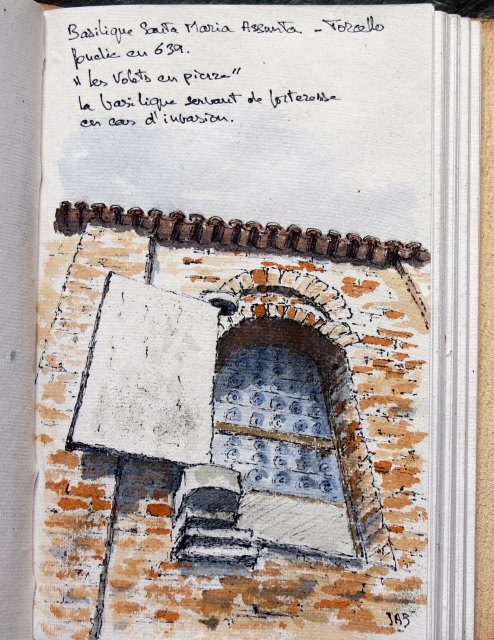 Basilique Santa Maria Assunta - Torcello
fondée en 639.
"les Volets en pierre"
la basilique servant de forteresse
en cas d'invasion.
JAS